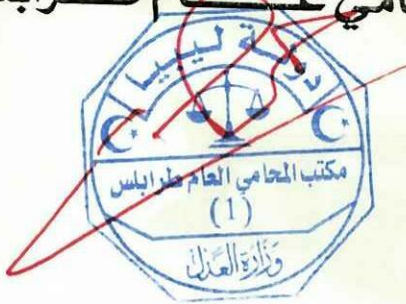 دولة ليبيا
مكتب المحامي العام طرابلس
(1)
وزارة العدل